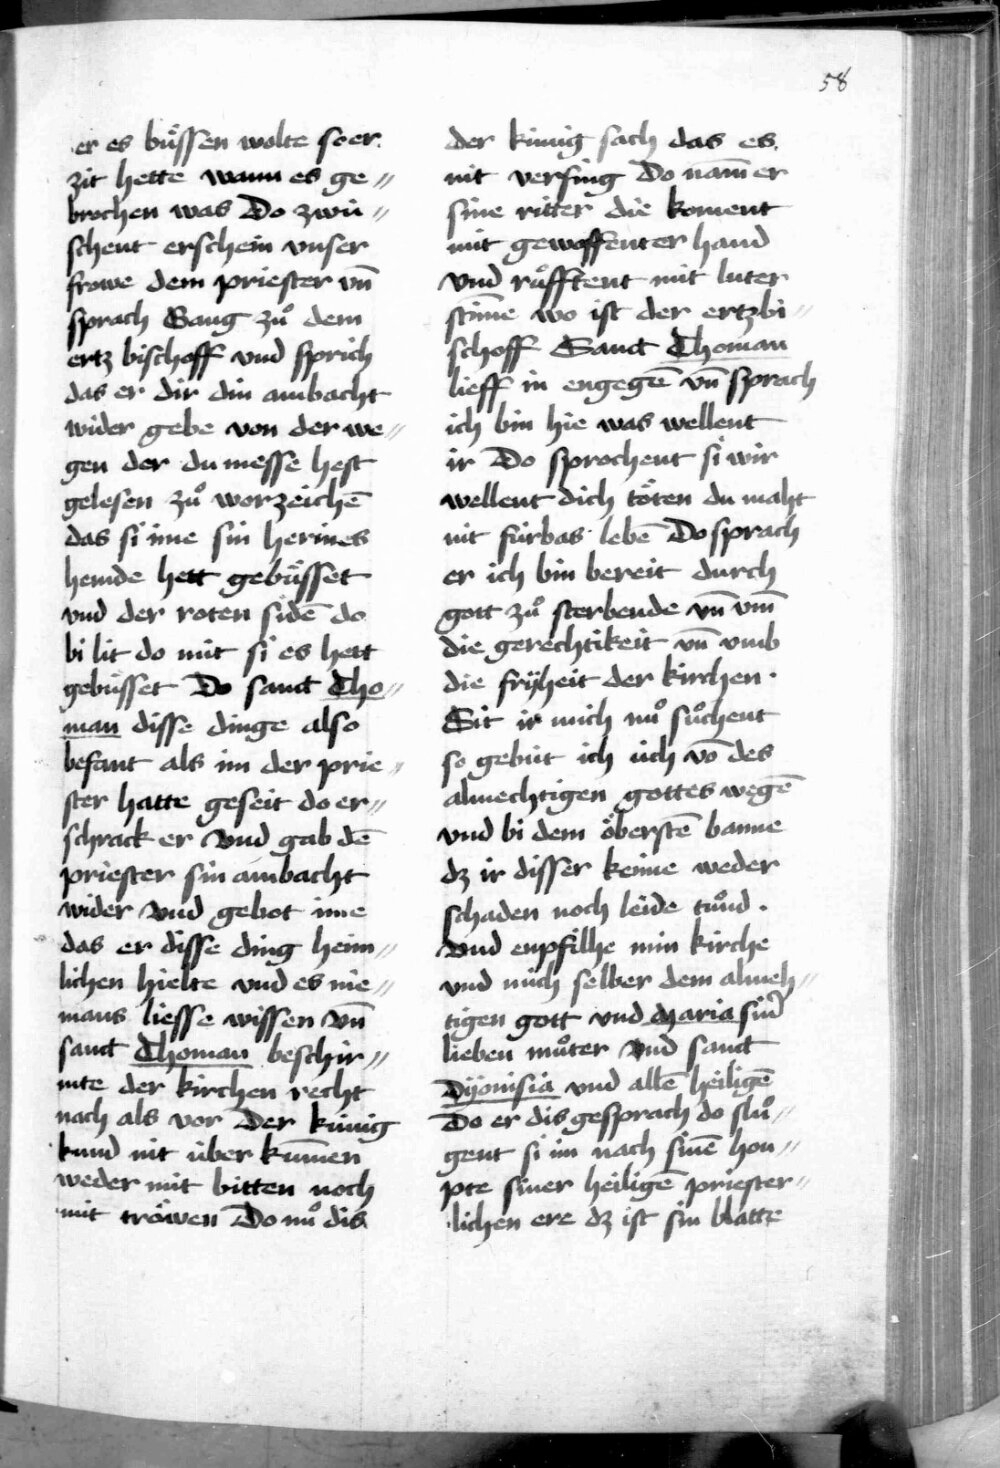 58
er es bu̎ssen wolte so er
zit hette wann es ge〃
brochen was Do zwu̎〃
schent erschein vnser
frowe dem priester vn̄
sprach Gang zů dem
ertz bischoff vnd sprich
das er dir din ambacht
wider gebe von der we〃
gen der du messe hest
gelesen zů worzeichē
das si ime sin herines
hemde hett gebüsset
vnd der roten sidē do
bi lit do mit si es hett
gebüsset Do sanct Tho〃
man disse dinge also
befant als im der prie〃
ster hatte geseit do er〃
schrack er Vnd gab dē
priester sin ambacht
wider Vnd gebot ime
das er disse ding heim〃
lichen hielte vnd es nie〃
mans liesse wissen Vn̄
sanct Thoman beschir〃
mte der kirchen recht
nach als vor Der künig
kund nit über kum̄en
weder mit bitten noch
mit tröwen Do nů dis
der künig sach das es
nit verfing Do nam̄ er
sine ritter die koment
mit gewoffenter hand
Vnd růfftent mit luter
stim̄e wo ist der ertzbi〃
schoff Sanct Thoman
lieff in engegē vn̄ sprach
ich bin hie was wellent
ir Do sprochent si wir
wellent dich töten du maht
nit fürbas lebē Do sprach
er ich bin bereit durch
gott zů sterbende vn̄ vm̄
die gerechtikeit vn̄ vmb
die frÿheit der kirchen.
Sit ir mich nů sůchent
so gebüt ich üch vō des
almechtigen gottes wegē
vnd bi dem öberstē banne
dz ir disser keime weder
schaden noch leide tůnd.
Vnd enpfilhe min kirche
vnd mich selber dem almeh〃
tigen gott vnd Maria sin̄
lieben můter Vnd sanct
Dÿonisia vnd allē heiligē
Do er dis gesprach do slů〃
gent si im nach sinē hou〃
pte siner heiligē priester〃
lichen ere dz ist sin blatte